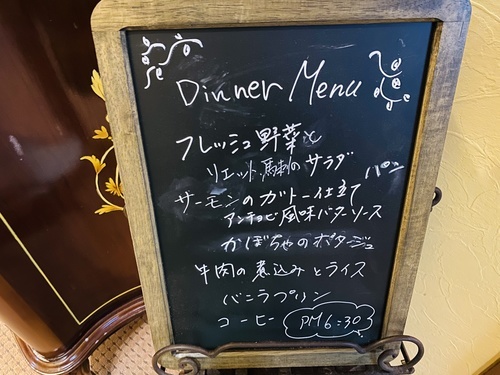 Dinner Menu
フレッシュ野菜と
リエット、馬刺のサラダ
パン
サーモンのガトー仕立て
アンチョビ風味バターソース
かぼちゃのポタージュ
牛肉の煮込みとライス
バニラプリン
コーヒー
PM6:30